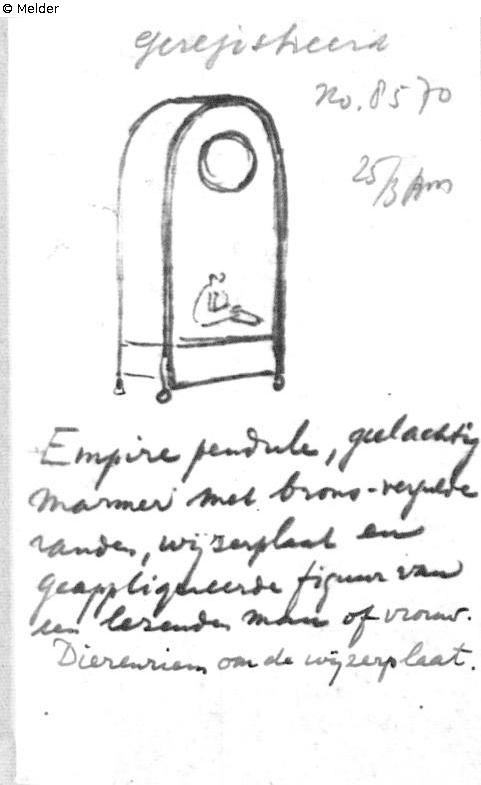 © Melder
Geregistreerd
No. 8570
25/3
Empire pendule, geelachtig
marmer met brons-vergulde
randen, wijzerplaat en
geappliqueerde figuur van
een lezende man of vrouw.
Dierenriem om de wijzerplaat.